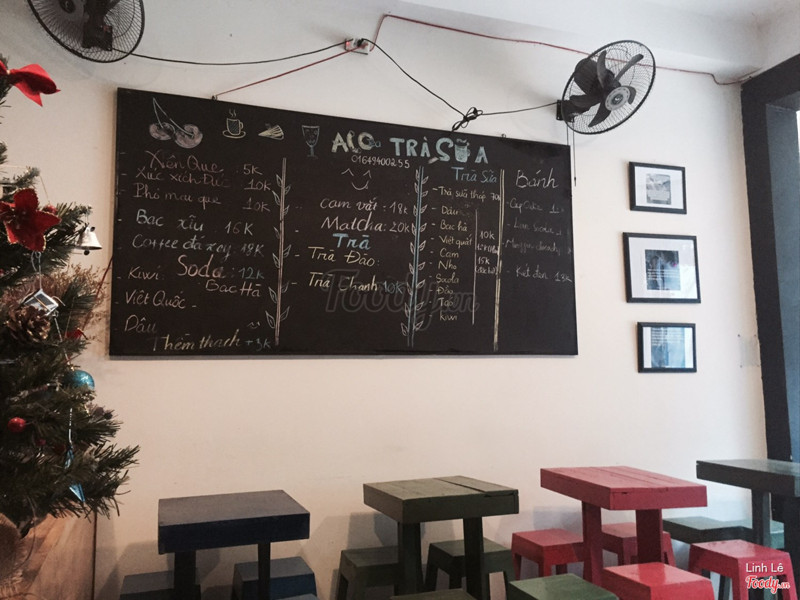 ALO TRÀ SỮA
01649400255
Xiên Que 5K
Xúc xích Đức 10K
Phô mai que 10K
- Bạc xỉu 16K
Coffee đá xay
Soda: 12K
- Kiwi
Bạc Hà
- Việt Quốc
- Dâu
Thêm thạch + 3K
cam vắt
- MatCha: 20K
Trà
- Trà Đào:
- Trà Chanh 10K
Trà Sữa
- Trà sữa thập
- Dâu
- Bạc hà
- Việt quất
- Cam
- Nho
- Soda
- Táo
- Kiwi
Bánh
- CupCake
Foody.vn
Linh Lê
Foody.vn